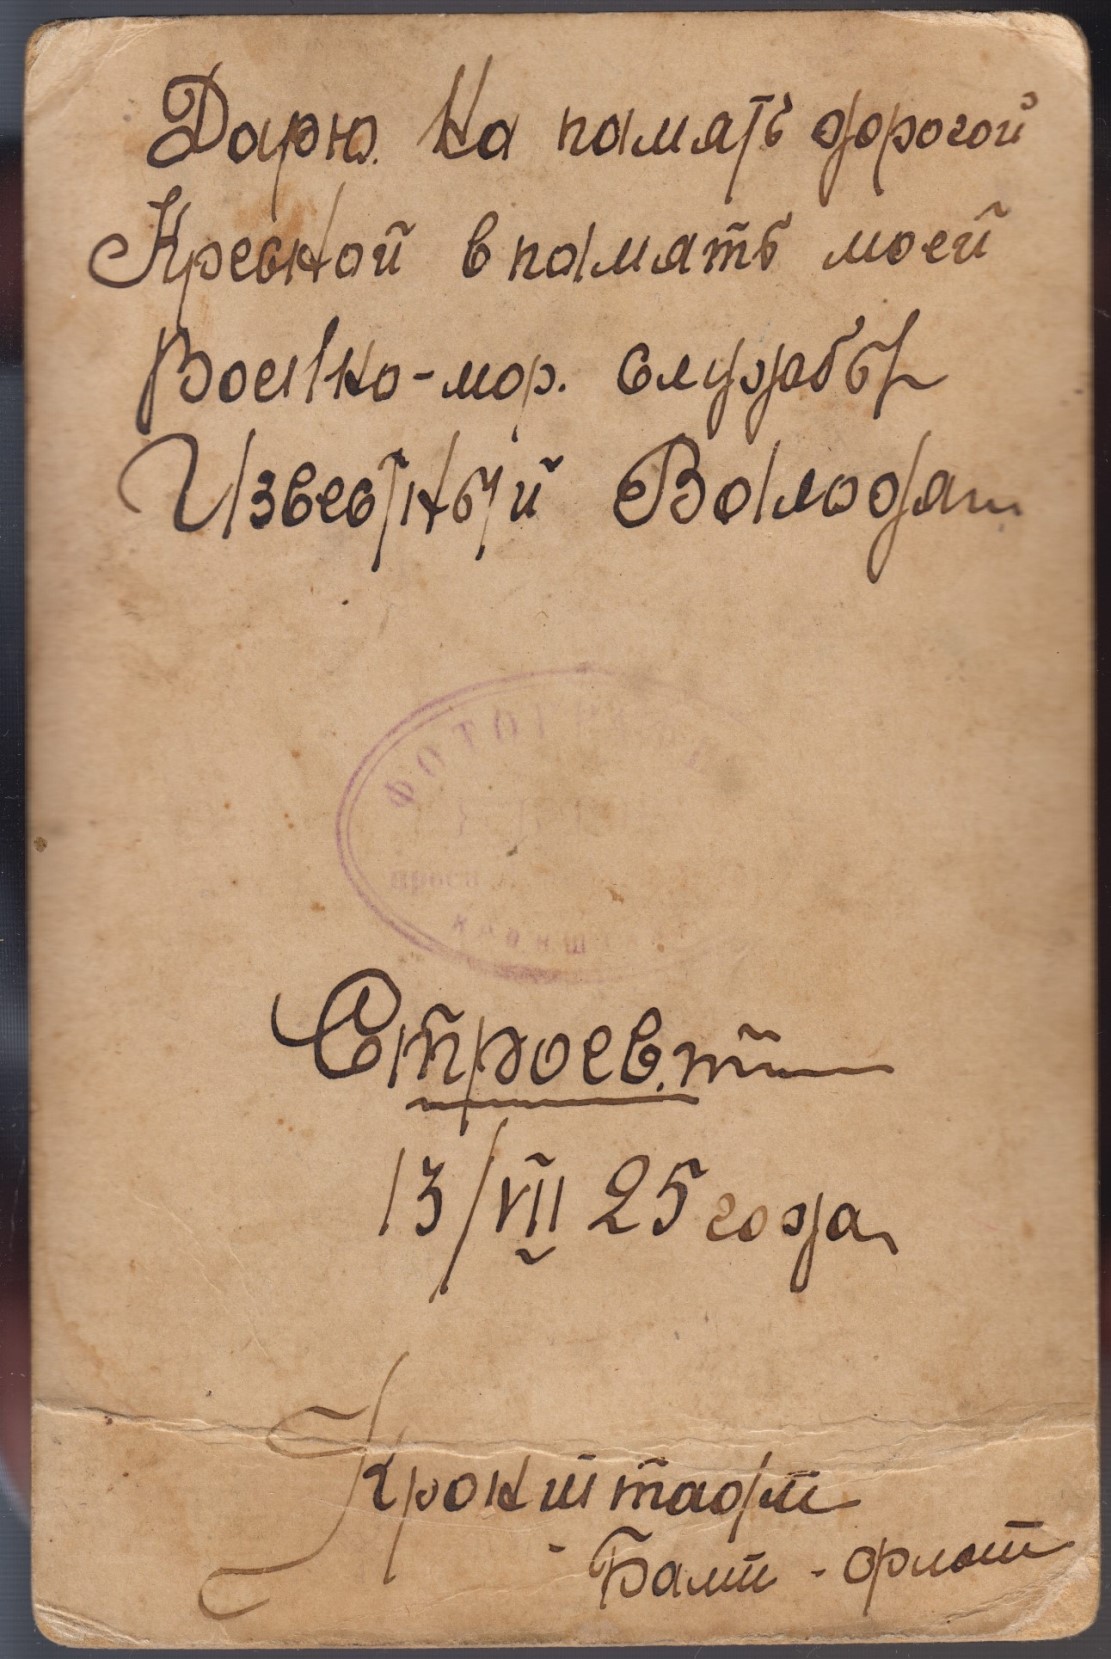 Дарю На память дорогой
Кресной в память моей
Военно-мор. службы
Известный Валодя
ФОТОГРАФ
просп
КРОНШ
Строев.
13/VII 25 года
Кронштадт
Балт - флот